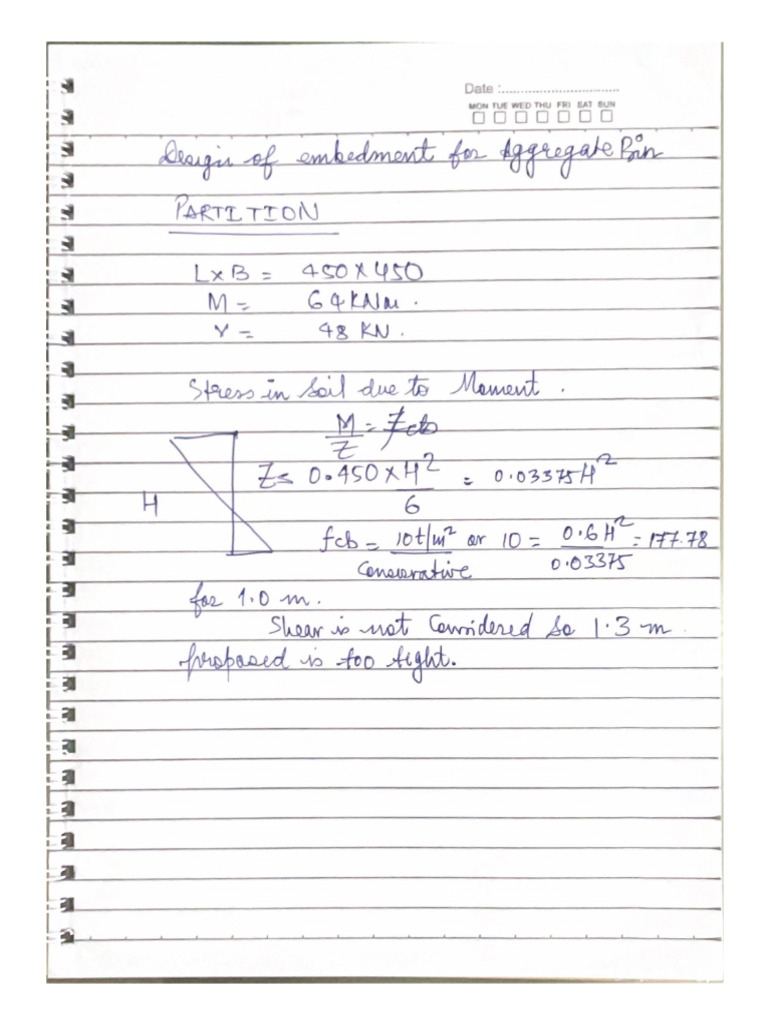 Date :
MON TUE WED THU FRI SAT SUN
Design of embedment for Aggregate Bin
PARTITION
L×B = 450×450
M = 64 KNm.
V = 48 KN.
Stress in Soil due to Moment.
M/Z = fcb
H
Z = 0.450×H²/6 = 0.03375H²
fcb = 10t/m² or 10 = 0.6H²/0.03375 = 177.78
Conservative
for 1.0 m.
Shear is not Considered so 1.3 m
proposed is too tight.